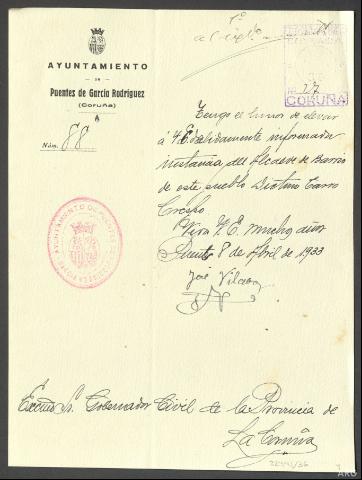 AYUNTAMIENTO
DE
Puentes de García Rodríguez
(Coruña)
Núm. 88
CORUÑA
Tengo el honor de elevar
á V.E. debidamente informada
instancia del Alcalde de Barrio
de este pueblo Dictino Carro
Viva V.E. muchos años
Puentes 8 de Abril de 1933
José Vilaboy
AYUNTAMIENTO DE PUENTES DE GARCIA RODRIGUEZ
Excmo Sr. Gobernador Civil de la Provincia de
La Coruña
ARG